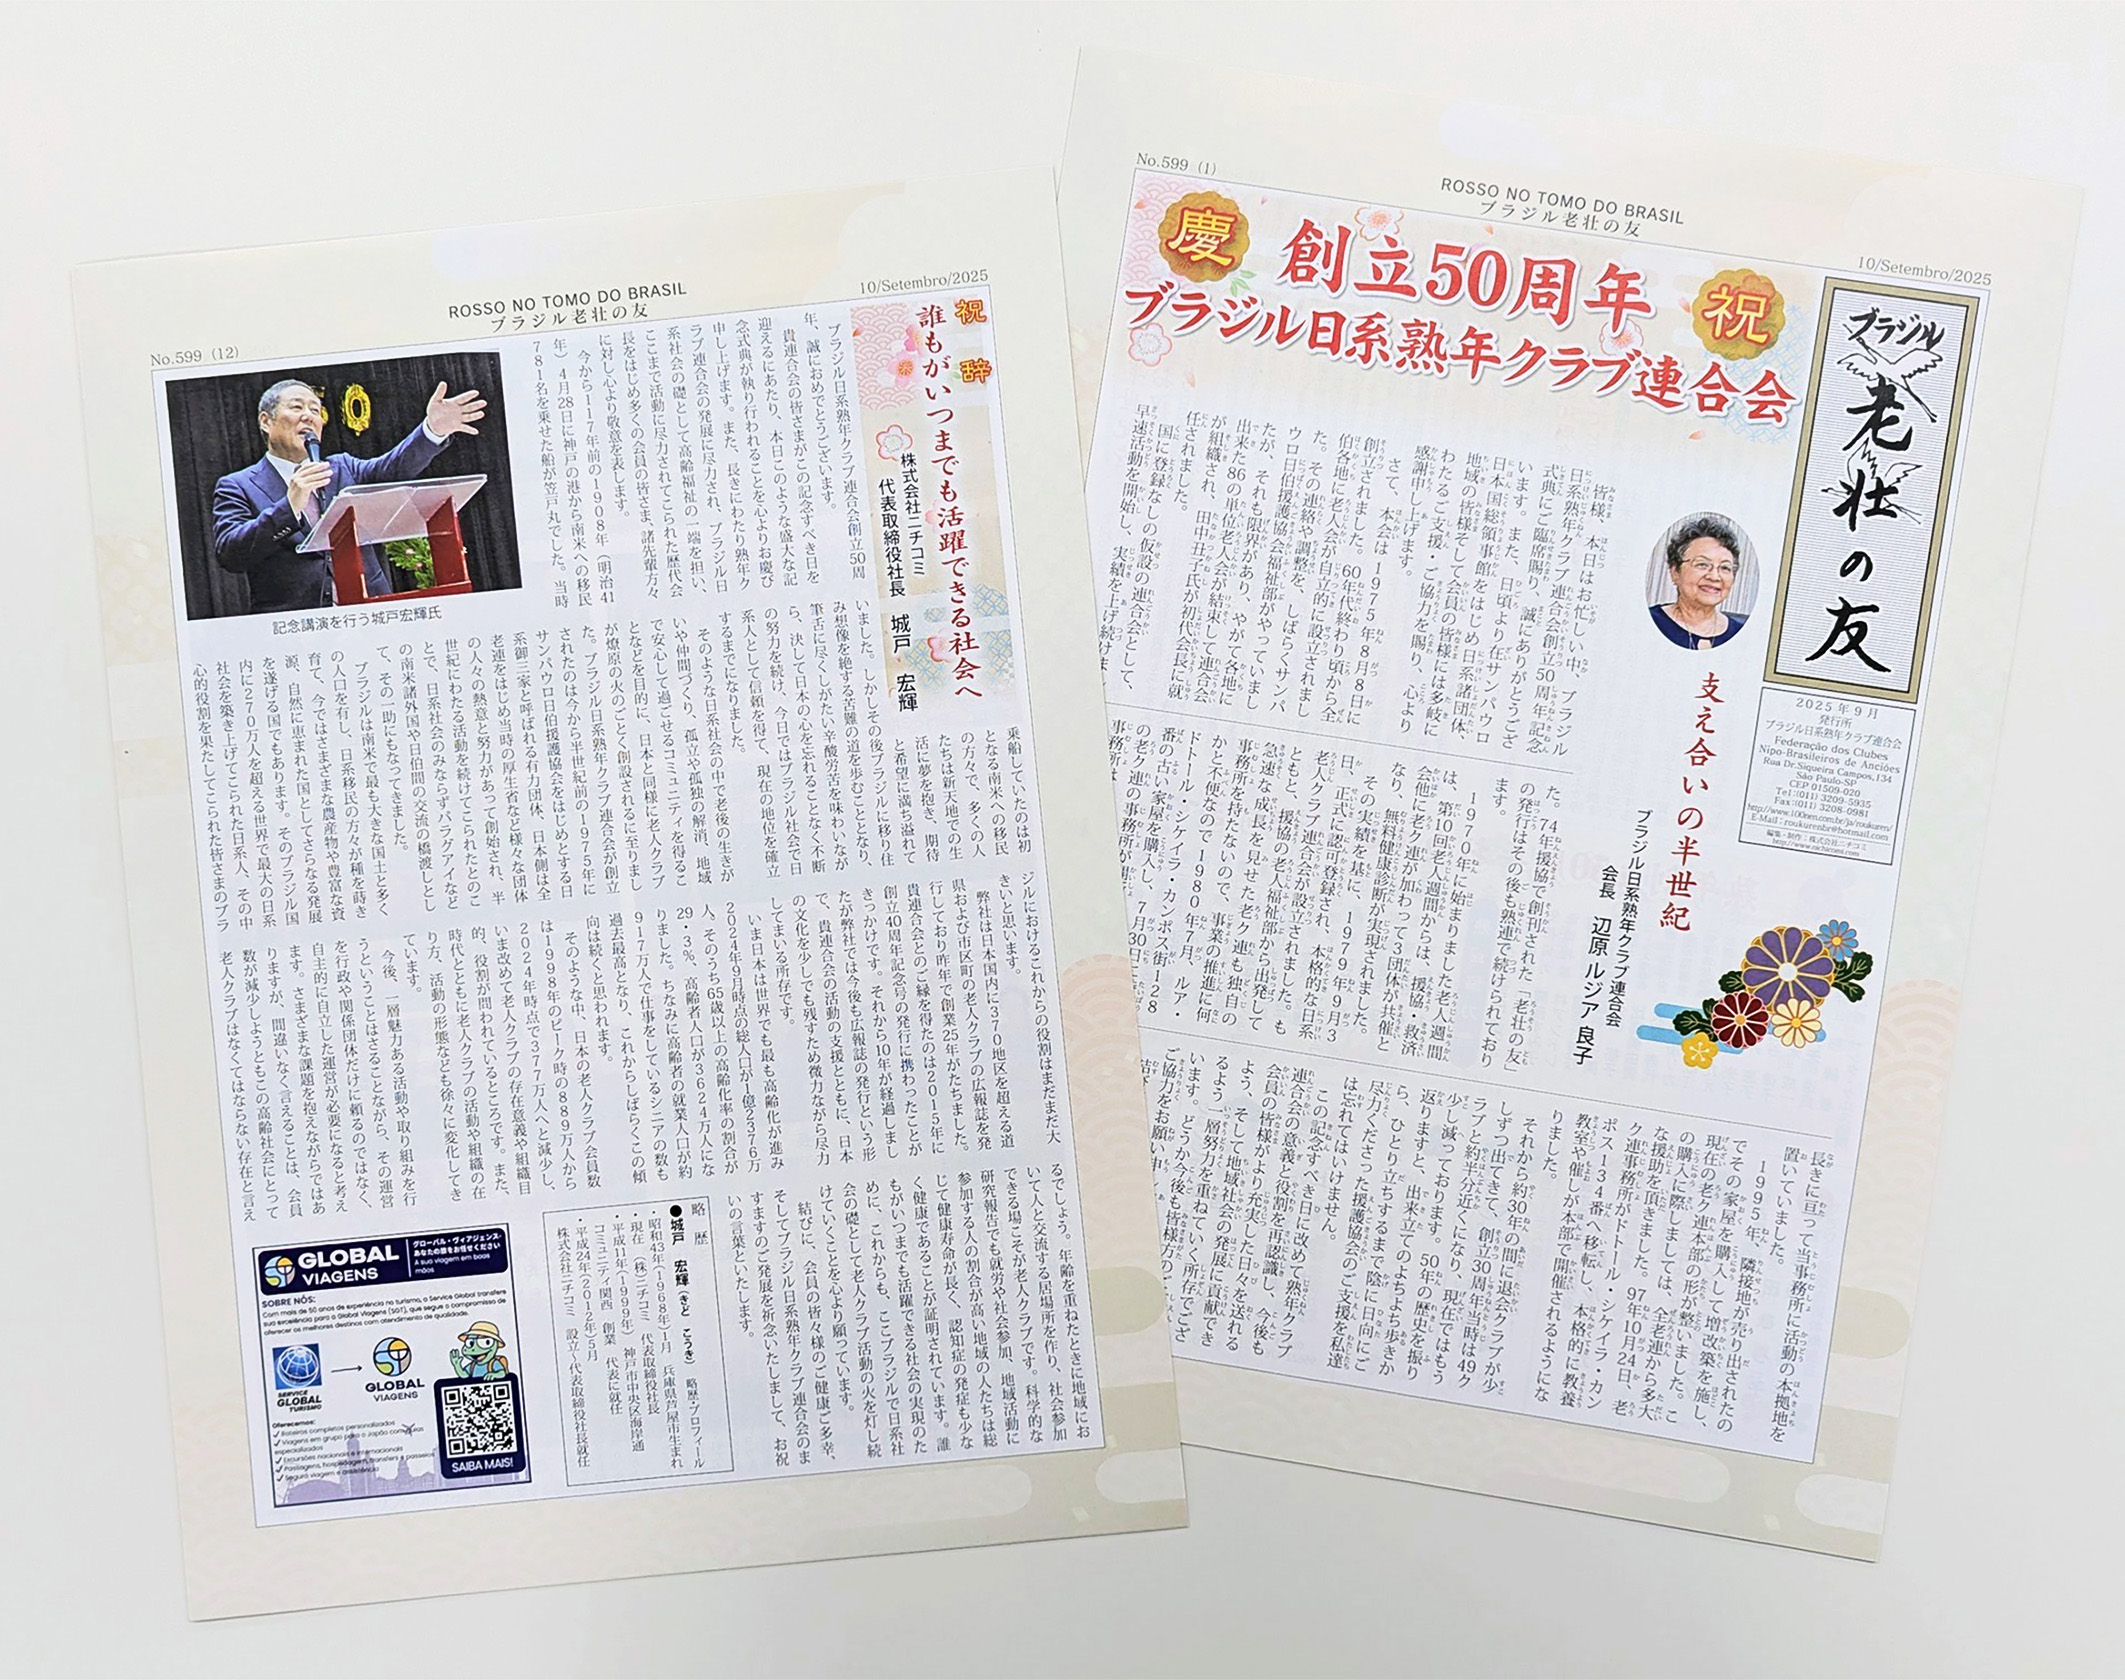 No.599 (12)
ROSSO NO TOMO DO BRASIL
ブラジル老壮の友
10/Setembro/2025
祝辞
誰もがいつまでも活躍できる社会へ
株式会社ニチコミ
代表取締役社長 城戸 宏輝
ブラジル日系熟年クラブ連合会創立50周
年、誠におめでとうございます。
貴連合会の皆さまがこの記念すべき日を
迎えるにあたり、本日このような盛大な記
念式典が執り行われることを心よりお慶び
申し上げます。また、長きにわたり熟年ク
ラブ連合会の発展に尽力され、ブラジル日
系社会の礎として高齢福祉の一端を担い、
ここまで活動に尽力されてこられた歴代会
長をはじめ多くの会員の皆さま、諸先輩方々
に対し心より敬意を表します。
今から117年前の1908年（明治41
年）4月28日に神戸の港から南米への移民
781名を乗せた船が笠戸丸でした。当時
記念講演を行う城戸宏輝氏
乗船していたのは初
となる南米への移民
の方々で、多くの人
たちは新天地での生
活に夢を抱き、期待
と希望に満ち溢れて
いました。しかしその後ブラジルに移り住
み想像を絶する苦難の道を歩むこととなり、
筆舌に尽くしがたい辛酸労苦を味わいなが
ら、決して日本の心を忘れることなく不断
の努力を続け、今日ではブラジル社会で日
系人として信頼を得て、現在の地位を確立
するまでになりました。
そのような日系社会の中で老後の生きが
いや仲間づくり、孤立や孤独の解消、地域
で安心して過ごせるコミュニティを得るこ
となどを目的に、日本と同様に老人クラブ
が燎原の火のごとく創設されるに至りまし
た。ブラジル日系熟年クラブ連合会が創立
されたのは今から半世紀前の1975年に
サンパウロ日伯援護協会をはじめとする日
系御三家と呼ばれる有力団体、日本側は全
老連をはじめ当時の厚生省など様々な団体
の人々の熱意と努力があって創始され、半
世紀にわたる活動を続けてこられたとのこ
とで、日系社会のみならずパラグアイなど
の南米諸外国や日伯間の交流の橋渡しとし
て、その一助にもなってきました。
ブラジルは南米で最も大きな国土と多く
の人口を有し、日系移民の方々が種を蒔き
育て、今ではさまざまな農産物や豊富な資
源、自然に恵まれた国としてさらなる発展
を遂げる国でもあります。そのブラジル国
内に270万人を超える世界で最大の日系
社会を築き上げてこられた日系人、その中
心的役割を果たしてこられた皆さまのブラ
ジルにおけるこれからの役割はまだまだ大
きいと思います。
弊社は日本国内に370地区を超える道
県および市区町の老人クラブの広報誌を発
行しており昨年で創業25年がたちました。
貴連合会とのご縁を得たのは2015年に
創立40周年記念号の発行に携わったことが
きっかけです。それから10年が経過しまし
たが弊社では今後も広報誌の発行という形
で、貴連合会の活動の支援とともに、日本
の文化を少しでも残すため微力ながら尽力
してまいる所存です。
いま日本は世界でも最も高齢化が進み
2024年9月時点の総人口が1億2376万
人。そのうち65歳以上の高齢化率の割合が
29・3％、高齢者人口が3624万人にな
りました。ちなみに高齢者の就業人口が約
917万人で仕事をしているシニアの数も
過去最高となり、これからしばらくこの傾
向は続くと思われます。
そのような中、日本の老人クラブ会員数
は1998年のピーク時の889万人から
2024年時点で377万人へと減少し、
いま改めて老人クラブの存在意義や組織目
的、役割が問われているところです。また、
時代とともに老人クラブの活動や組織の在
り方、活動の形態なども徐々に変化してき
ています。
今後、一層魅力ある活動や取り組みを行
うということはさることながら、その運営
を行政や関係団体だけに頼るのではなく、
自主的に自立した運営が必要になると考え
ます。さまざまな課題を抱えながらではあ
りますが、間違いなく言えることは、会員
数が減少しようともこの高齢社会にとって
老人クラブはなくてはならない存在と言え
るでしょう。年齢を重ねたときに地域にお
いて人と交流する居場所を作り、社会参加
できる場こそが老人クラブです。科学的な
研究報告でも就労や社会参加、地域活動に
参加する人の割合が高い地域の人たちは総
じて健康寿命が長く、認知症の発症も少な
く健康であることが証明されています。誰
もがいつまでも活躍できる社会の実現のた
めに、これからも、ここブラジルで日系社
会の礎として老人クラブ活動の火を灯し続
けていくことを心より願っています。
結びに、会員の皆々様のご健康ご多幸、
そしてブラジル日系熟年クラブ連合会のま
すますのご発展を祈念いたしまして、お祝
いの言葉といたします。
略 歴
●城戸 宏輝（きど こうき） 略歴・プロフィール
・昭和43年（1968年）1月 兵庫県芦屋市生まれ
・現在（株）ニチコミ 代表取締役社長
・平成11年（1999年） 神戸市中央区海岸通
コミュニティ関西 創業 代表に就任
・平成24年（2012年）5月
株式会社ニチコミ 設立 代表取締役社長就任
GLOBAL
VIAGENS
グローバル・ヴィアジェンス-
あなたの旅をお任せください
A sua viagem em boas
mãos
SOBRE NÓS:
Com mais de 50 anos de experiência no turismo, a Service Global transfere
sua excelência para a Global Viagens (SGT), que segue o compromisso de
oferecer os melhores destinos com atendimento de qualidade.
SERVICE
GLOBAL
TURISMO
GLOBAL
VIAGENS
Oferecemos:
Roteiros completos personalizados
Viagens em grupo para o Japão com guias
especializados
Excursões nacionais e internacionais
Passagens, hospedagem, transfers e passeios
Seguro viagem e assistência
SAIBA MAIS!
No.599 (1)
ROSSO NO TOMO DO BRASIL
ブラジル老壮の友
10/Setembro/2025
慶
祝
創立50周年
ブラジル日系熟年クラブ連合会
ブラジル
老壮の友
2025年9月
発行所
ブラジル日系熟年クラブ連合会
Federação dos Clubes
Nipo-Brasileiros de Anciões
Rua Dr.Siqueira Campos,134
São Paulo-SP
CEP 01509-020
Tel:(011) 3209-5935
Fax:(011) 3208-0981
http://www.100nen.com.br/ja/roukuren/
E-Mail : roukurenbr@hotmail.com
編集・制作：株式会社ニチコミ
http://www.nichicomi.com
支え合いの半世紀
ブラジル日系熟年クラブ連合会
会長 辺原 ルジア 良子
皆様、本日はお忙しい中、ブラジル
日系熟年クラブ連合会創立50周年記念
式典にご臨席賜り、誠にありがとうござ
います。また、日頃より在サンパウロ
日本国総領事館をはじめ日系諸団体、
地域の皆様そして会員の皆様には多岐に
わたるご支援・ご協力を賜り、心より
感謝申し上げます。
さて、本会は1975年8月8日に
創立されました。60年代終わり頃から全
伯各地に老人会が自立的に設立されまし
た。その連絡や調整を、しばらくサンパ
ウロ日伯援護協会福祉部がやっていまし
たが、それも限界があり、やがて各地に
出来た86の単位老人会が結束して連合会
が組織され、田中丑子氏が初代会長に就
任されました。
国に登録なしの仮設の連合会として、
早速活動を開始し、実績を上げ続けま
した。74年援協で創刊された「老壮の友」
の発行はその後も熟連で続けられており
ます。
1970年に始まりました老人週間
は、第10回老人週間からは、援協・救済
会他に老ク連が加わって3団体が共催と
なり、無料健康診断が実現されました。
その実績を基に、1979年9月3
日、正式に認可登録され、本格的な日系
老人クラブ連合会が設立されました。も
ともと、援協の老人福祉部から出発して
急速な成長を見せた老ク連も独自の
事務所を持たないので、事業の推進に何
かと不便なので1980年7月、ルア・
ドトール・シケイラ・カンポス街128
番の古い家屋を購入し、7月30日に
の老ク連の事務所が
事務所は
長きに亘って当事務所に活動の本拠地を
置いていました。
1995年、隣接地が売り出されたの
でその家屋を購入して増改築を施し、
現在の老ク連本部の形が整いました。こ
の購入に際しましては、全老連から多大
な援助を頂きました。97年10月24日、老
ク連事務所がドトール・シケイラ・カン
ポス134番へ移転し、本格的に教養
教室や催しが本部で開催されるようにな
りました。
それから約30年の間に退会クラブが少
しずつ出てきて、創立30周年当時は49ク
ラブと約半分近くになり、現在ではもう
少し減っております。50年の歴史を振り
返りますと、出来立てのよちよち歩きか
ら、ひとり立ちするまで陰に日向にご
尽力くださった援護協会のご支援を私達
は忘れてはいけません。
この記念すべき日に改めて熟年クラブ
連合会の意義と役割を再認識し、今後も
会員の皆様がより充実した日々を送れる
よう、そして地域社会の発展に貢献でき
るよう一層努力を重ねていく所存でござ
います。どうか今後も皆様方のご
ご協力をお願い申し